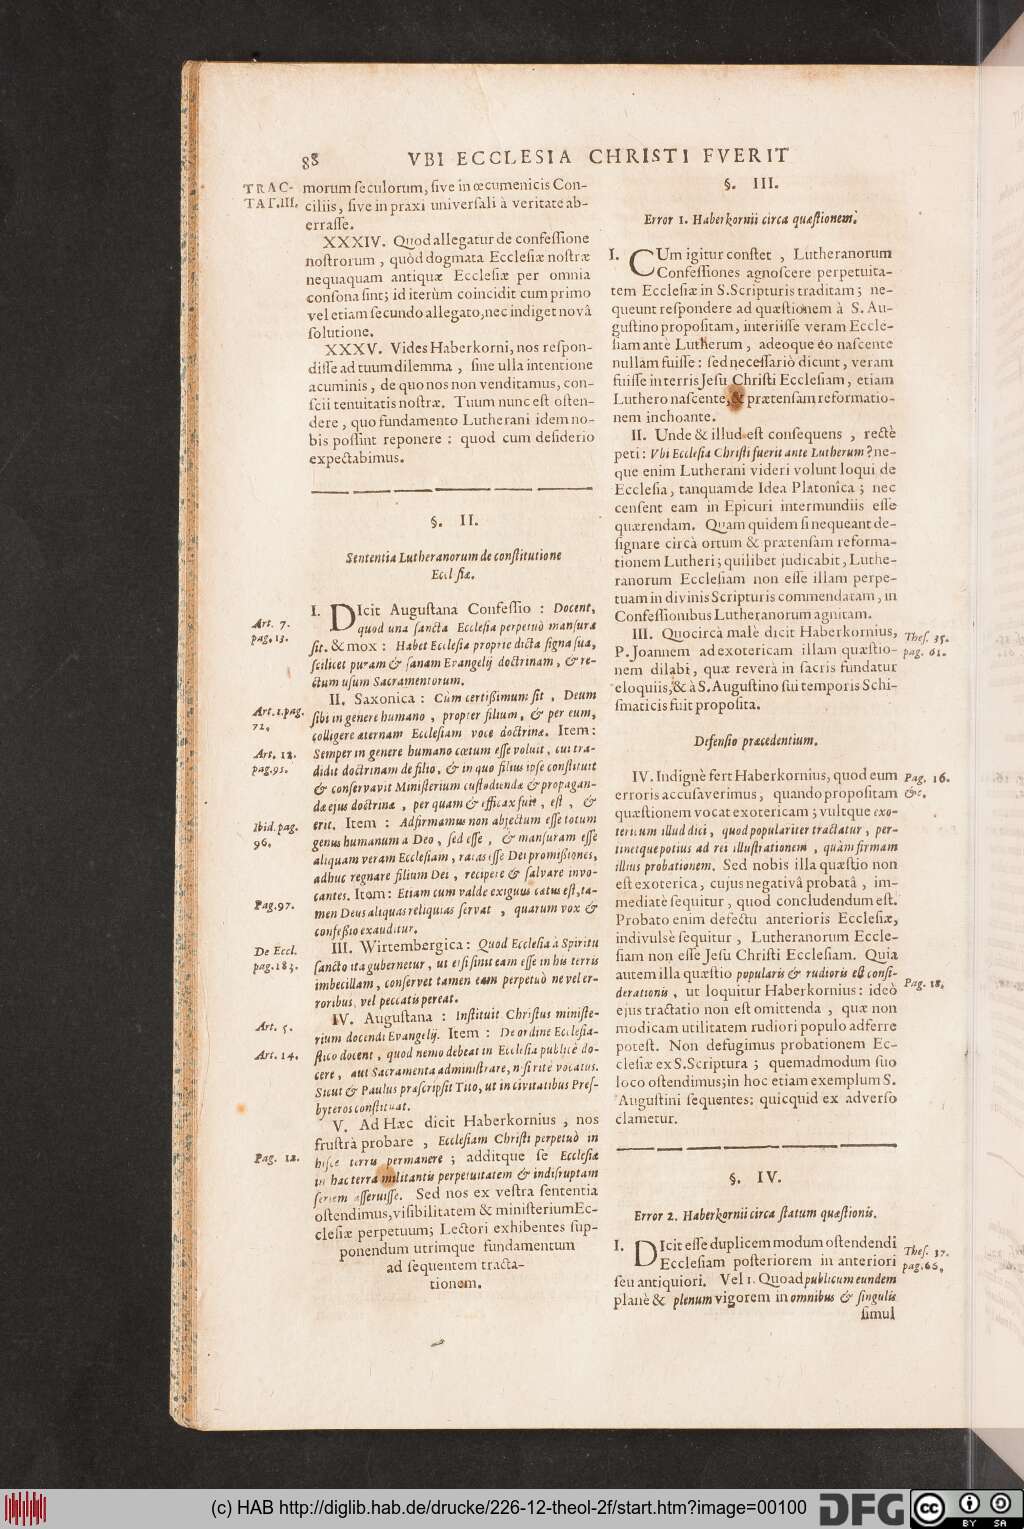 88 VBI ECCLESIA CHRISTI FVERIT
TRAC-
TAT.III.
morum seculorum, sive in œcumenicis Con-
ciliis, sive in praxi universali à veritate ab-
errasse.
XXXIV. Quod allegatur de confessione
nostrorum, quòd dogmata Ecclesiæ nostræ
nequaquam antiquæ Ecclesiæ per omnia
consona sint; id iterùm coincidit cum primo
vel etiam secundo allegato, nec indiget novâ
solutione.
XXXV. Vides Haberkorni, nos respon-
disse ad tuum dilemma, sine ulla intentione
acuminis, de quo nos non venditamus, con-
scii tenuitatis nostræ. Tuum nunc est osten-
dere, quo fundamento Lutherani idem no-
bis possint reponere: quod cum desiderio
expectabimus.
§. II.
Sententia Lutheranorum de constitutione
Eccl siæ.
I. DIcit Augustana Confessio: Docent,
quod una sancta Ecclesia perpetuò mansura
sit. & mox: Habet Ecclesia propriè dicta signa sua,
scilicet puram & sanam Evangelij doctrinam, & re-
ctum usum Sacramentorum.
Art. 7.
pag. 13.
II. Saxonica: Cùm certißimum sit, Deum
sibi in genere humano, propter filium, & per eum,
colligere æternam Ecclesiam voce doctrinæ. Item:
Semper in genere humano cœtum esse voluit, cui tra-
didit doctrinam de filio, & in quo filius ipse constituit
& conservavit Ministerium custodiendæ & propagan-
dæ ejus doctrinæ, per quam & efficax fuit, est, &
erit. Item: Adfirmamus non abjectum esse totum
genus humanum à Deo, sed esse, & mansuram esse
aliquam veram Ecclesiam, ratas esse Dei promißiones,
adhuc regnare filium Dei, recipere & salvare invo-
cantes. Item: Etiam cum valde exiguus cœtus est, ta-
men Deus aliquas reliquias servat, quarum vox &
confeßio exauditur.
Art. 1. pag.
72.
Art. 12.
pag. 95.
Ibid. pag.
96.
Pag. 97.
III. Wirtembergica: Quod Ecclesia à Spiritu
sancto ita gubernetur, ut etsi sinit eam esse in his terris
imbecillam, conservet tamen eam perpetuò ne vel er-
roribus, vel peccatis pereat.
De Eccl.
pag. 183.
IV. Augustana: Instituit Christus ministe-
rium docendi Evangelij. Item: De ordine Ecclesia-
stico docent, quod nemo debeat in Ecclesia publicè do-
cere, aut Sacramenta administrare, nisi ritè vocatus.
Sicut & Paulus præscripsit Tito, ut in civitatibus Pres-
byteros constituat.
Art. 5.
Art. 14.
V. Ad Hæc dicit Haberkornius, nos
frustrà probare, Ecclesiam Christi perpetuò in
hisce terris permanere; additque se Ecclesiæ
in hac terra militantis perpetuitatem & indisruptam
seriem asseruisse. Sed nos ex vestra sententia
ostendimus, visibilitatem & ministerium Ec-
clesiæ perpetuum; Lectori exhibentes sup-
ponendum utrimque fundamentum
ad sequentem tracta-
tionem.
Pag. 12.
§. III.
Error 1. Haberkornii circa quæstionem.
I. CUm igitur constet, Lutheranorum
Confessiones agnoscere perpetuita-
tem Ecclesiæ in S. Scripturis traditam; ne-
queunt respondere ad quæstionem à S. Au-
gustino propositam, interiisse veram Eccle-
siam antè Lutherum, adeoque eo nascente
nullam fuisse: sed necessariò dicunt, veram
fuisse in terris Jesu Christi Ecclesiam, etiam
Luthero nascente, & prætensam reformatio-
nem inchoante.
II. Unde & illud est consequens, rectè
peti: Vbi Ecclesia Christi fuerit ante Lutherum? ne-
que enim Lutherani videri volunt loqui de
Ecclesia, tanquam de Idea Platonica; nec
censent eam in Epicuri intermundiis esse
quærendam. Quam quidem si nequeant de-
signare circà ortum & prætensam reforma-
tionem Lutheri; quilibet judicabit, Luthe-
ranorum Ecclesiam non esse illam perpe-
tuam in divinis Scripturis commendatam, in
Confessionibus Lutheranorum agnitam.
III. Quocircà malè dicit Haberkornius,
P. Joannem ad exotericam illam quæstio-
nem dilabi, quæ reverà in sacris fundatur
eloquiis, & à S. Augustino sui temporis Schi-
smaticis fuit proposita.
Thes. 35.
pag. 61.
Defensio præcedentium.
IV. Indignè fert Haberkornius, quod eum
erroris accusaverimus, quando propositam
quæstionem vocat exotericam; vultque exo-
tericum illud dici, quod populariter tractatur, per-
tinetque potius ad rei illustrationem, quàm firmam
illius probationem. Sed nobis illa quæstio non
est exoterica, cujus negativâ probatâ, im-
mediatè sequitur, quod concludendum est.
Probato enim defectu anterioris Ecclesiæ,
indivulsè sequitur, Lutheranorum Eccle-
siam non esse Jesu Christi Ecclesiam. Quia
autem illa quæstio popularis & rudioris est consi-
derationis, ut loquitur Haberkornius: ideò
ejus tractatio non est omittenda, quæ non
modicam utilitatem rudiori populo adferre
potest. Non defugimus probationem Ec-
clesiæ ex S. Scriptura; quemadmodum suo
loco ostendimus; in hoc etiam exemplum S.
Augustini sequentes: quicquid ex adverso
clametur.
Pag. 16.
&c.
Pag. 18.
§. IV.
Error 2. Haberkornii circa statum quæstionis.
I. DIcit esse duplicem modum ostendendi
Ecclesiam posteriorem in anteriori
seu antiquiori. Vel 1. Quoad publicum eundem
planè & plenum vigorem in omnibus & singulis
simul
Thes. 37.
pag. 66.
(c) HAB http://diglib.hab.de/drucke/226-12-theol-2f/start.htm?image=00100
DFG
cc
BY SA